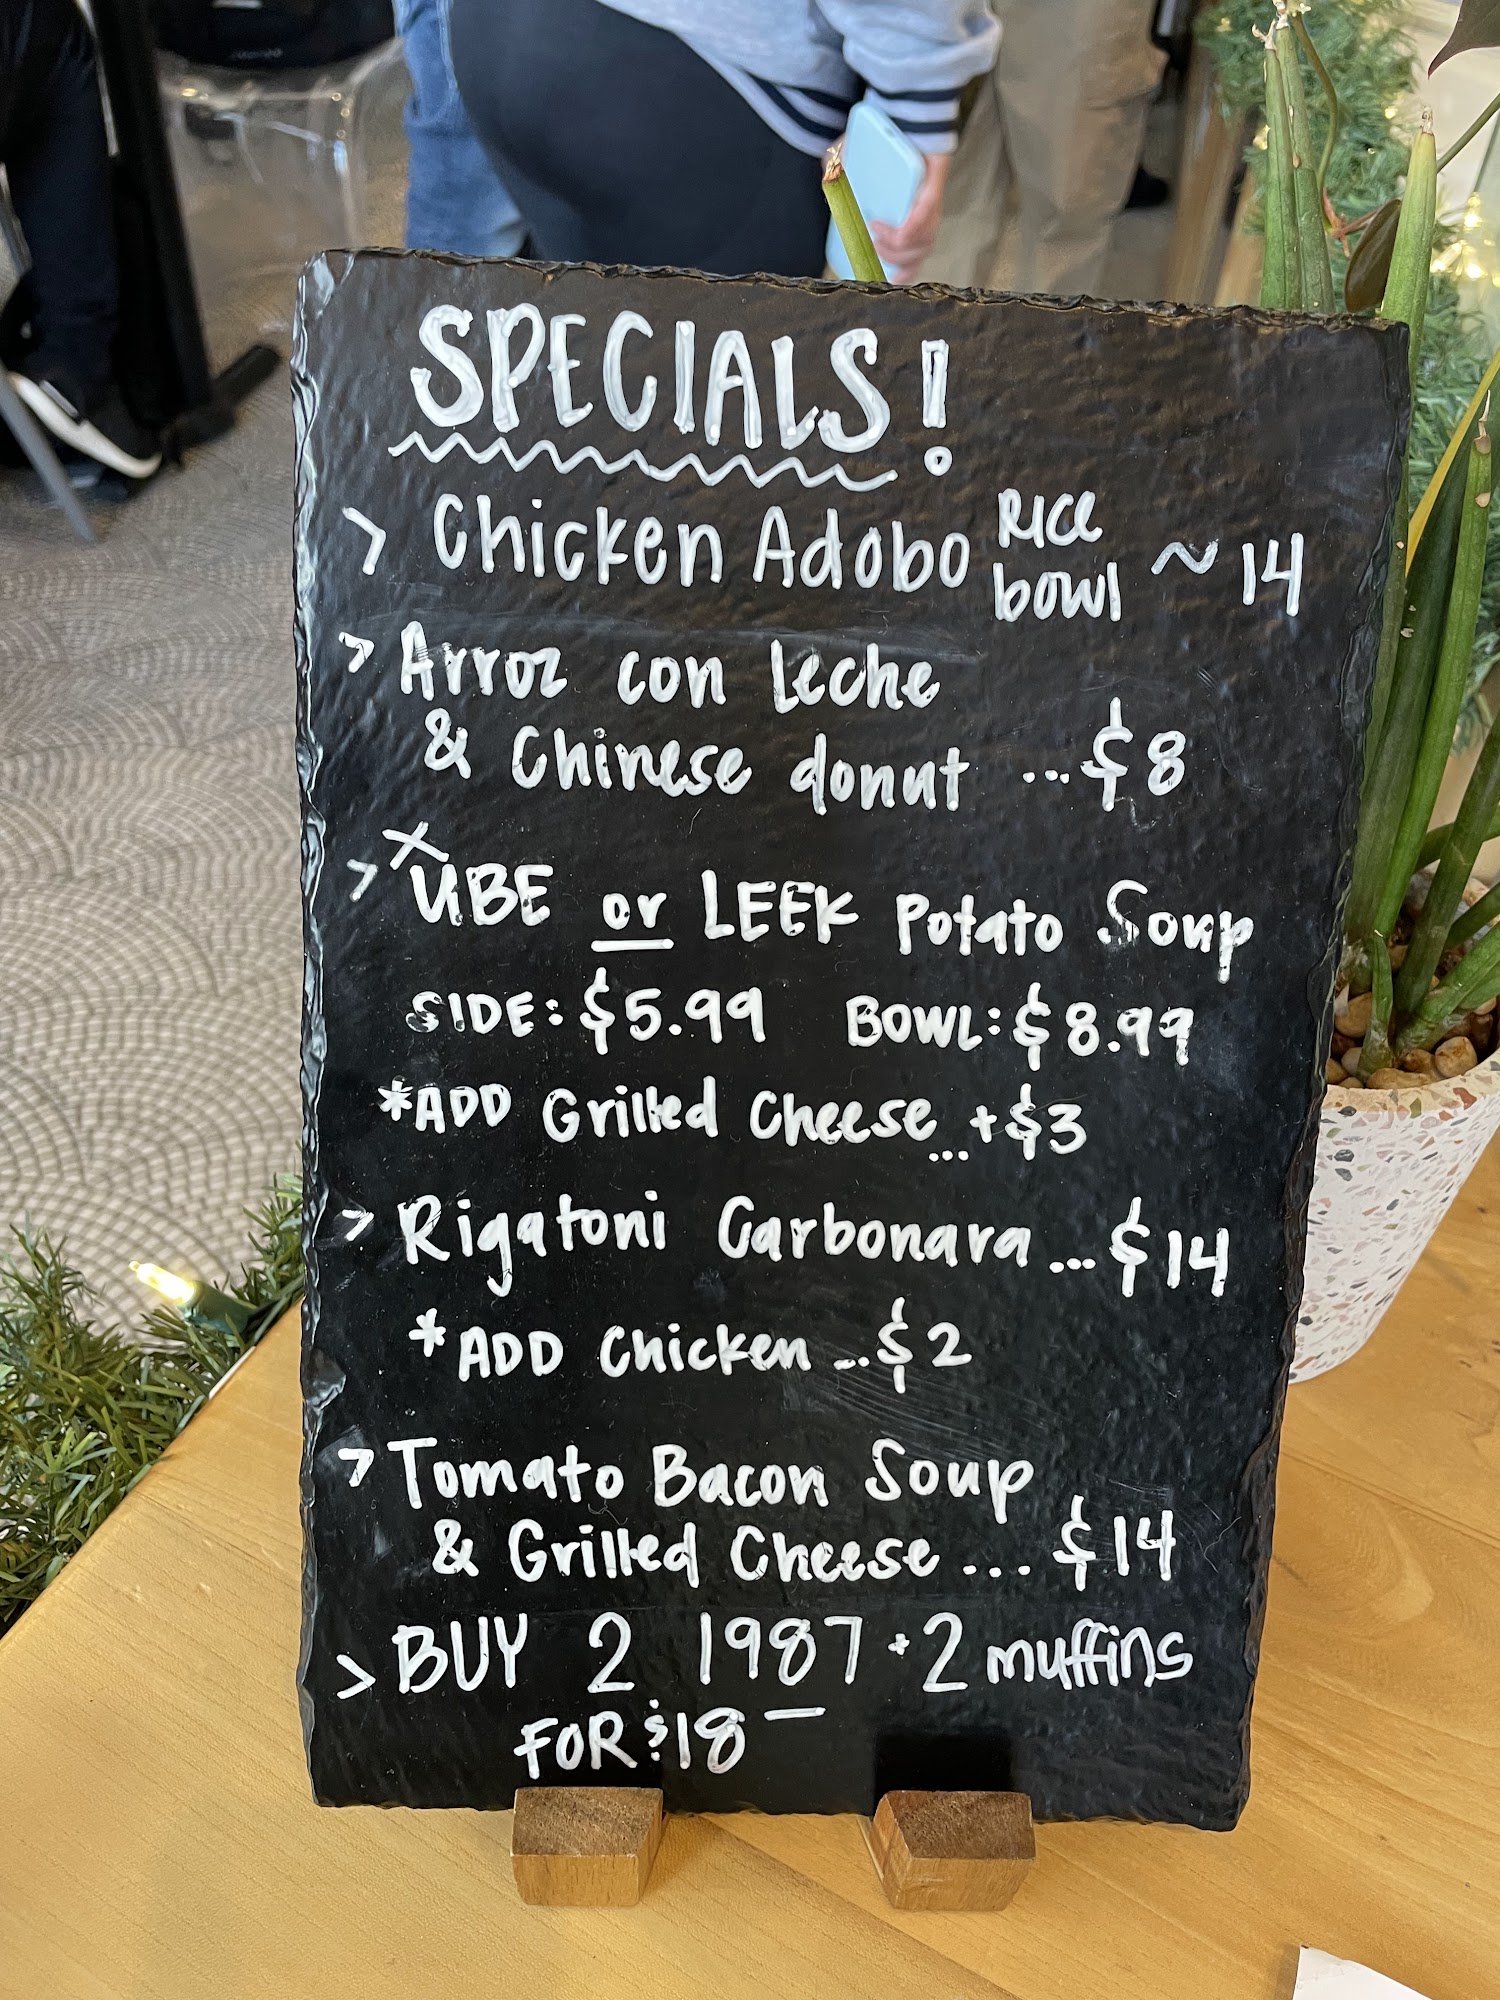 SPECIALS!
> Chicken Adobo Rice bowl ~ 14
> Arroz con Leche
& Chinese donut ...$8
> UBE or LEEK Potato Soup
SIDE: $5.99 BOWL: $8.99
*ADD Grilled Cheese...+$3
> Rigatoni Carbonara...$14
*ADD Chicken...$2
> Tomato Bacon Soup
& Grilled Cheese...$14
> BUY 2 1987 + 2 muffins
FOR $18